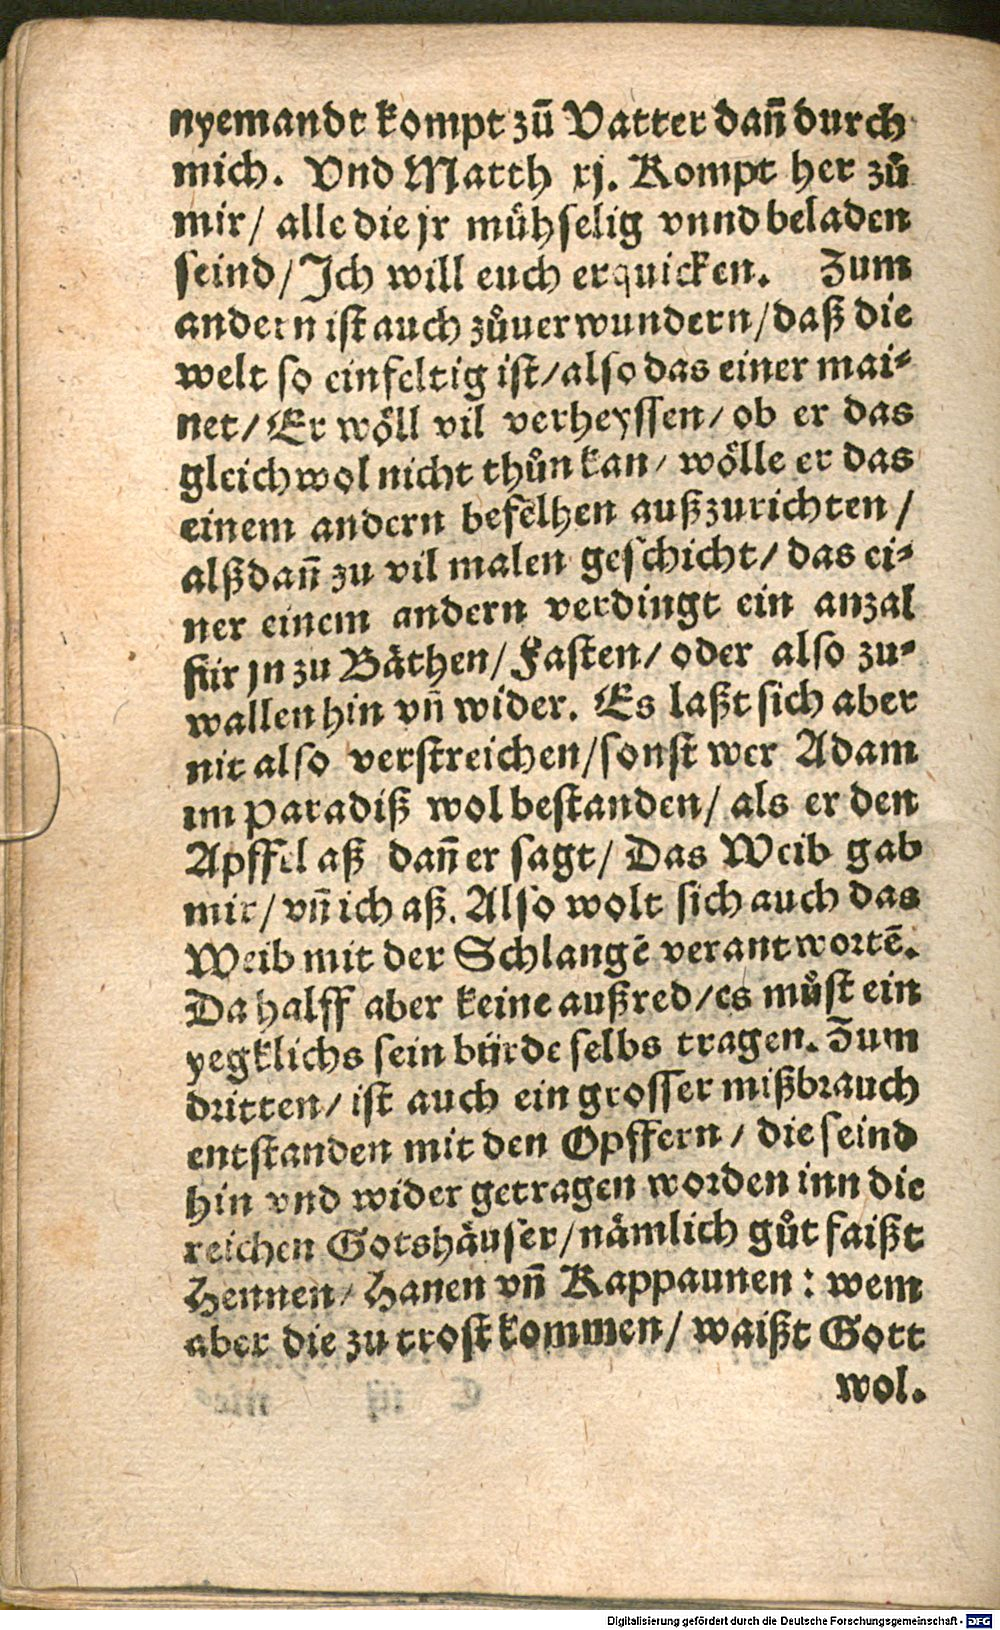 nyemandt kompt zũ Vatter dañ durch
mich. Vnd Matth xj. Kompt her zů
mir/ alle die jr mühselig vnnd beladen
seind/ Ich will euch erquicken. Zum
andern ist auch zůuerwundern/ daß die
welt so einfeltig ist/ also das einer mai⸗
net/ Er wöll vil verheyssen/ ob er das
gleich wol nicht thůn kan/ wölle er das
einem andern befelhen außzurichten/
alßdañ zu vil malen geschicht/ das ei⸗
ner einem andern verdingt ein anzal
für jn zu Bäthen/ Fasten/ oder also zu⸗
wallen hin vñ wider. Es laßt sich aber
nit also verstreichen/ sonst wer Adam
im paradiß wol bestanden/ als er den
Apffel aß dañ er sagt/ Das Weib gab
mir/ vñ ich aß. Also wolt sich auch das
Weib mit der Schlangē verantwortē.
Da halff aber keine außred/ es můst ein
yegklichs sein bürde selbs tragen. Zum
dritten/ ist auch ein grosser mißbrauch
entstanden mit den Opffern/ die seind
hin vnd wider getragen worden inn die
reichen Gotshäuser/ nämlich gůt faißt
Hennen/ Hanen vñ Kappaunen: wem
aber die zu trost kommen/ waißt Gott
wol.
Digitalisierung gefördert durch die Deutsche Forschungsgemeinschaft - DFG